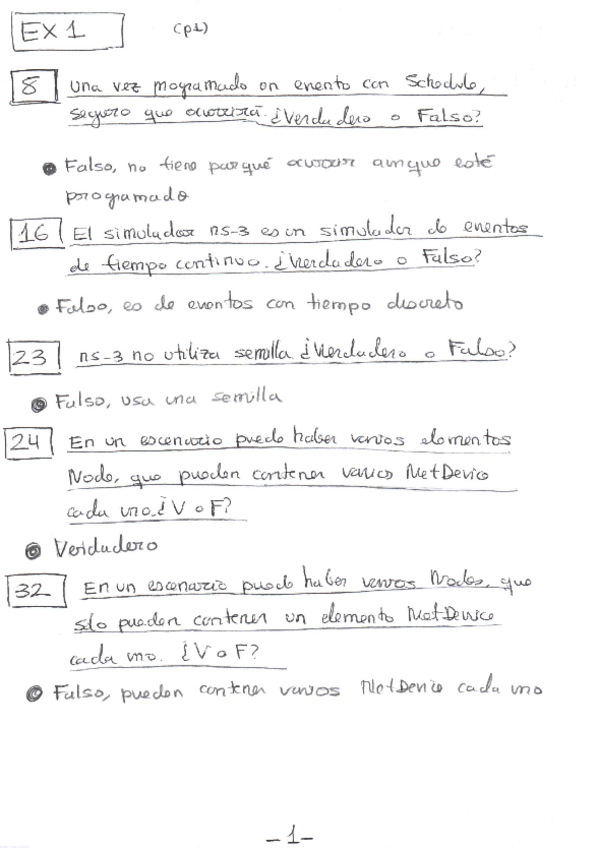 EX 1 (p1)
8 Una vez programado un evento con Schedule,
seguro que ocurrirá. ¿Verdadero o Falso?
Falso, no tiene porqué ocurrir aunque esté
programado
16 El simulador ns-3 es un simulador de eventos
de tiempo continuo. ¿Verdadero o Falso?
Falso, es de eventos con tiempo discreto
23 ns-3 no utiliza semilla ¿Verdadero o Falso?
Falso, usa una semilla
24 En un escenario puede haber varios elementos
Node, que pueden contener varios NetDevice
cada uno. ¿V o F?
Verdadero
32 En un escenario puede haber varios Nodes, que
sólo pueden contener un elemento NetDevice
cada uno. ¿V o F?
Falso, pueden contener varios NetDevice cada uno
-1-